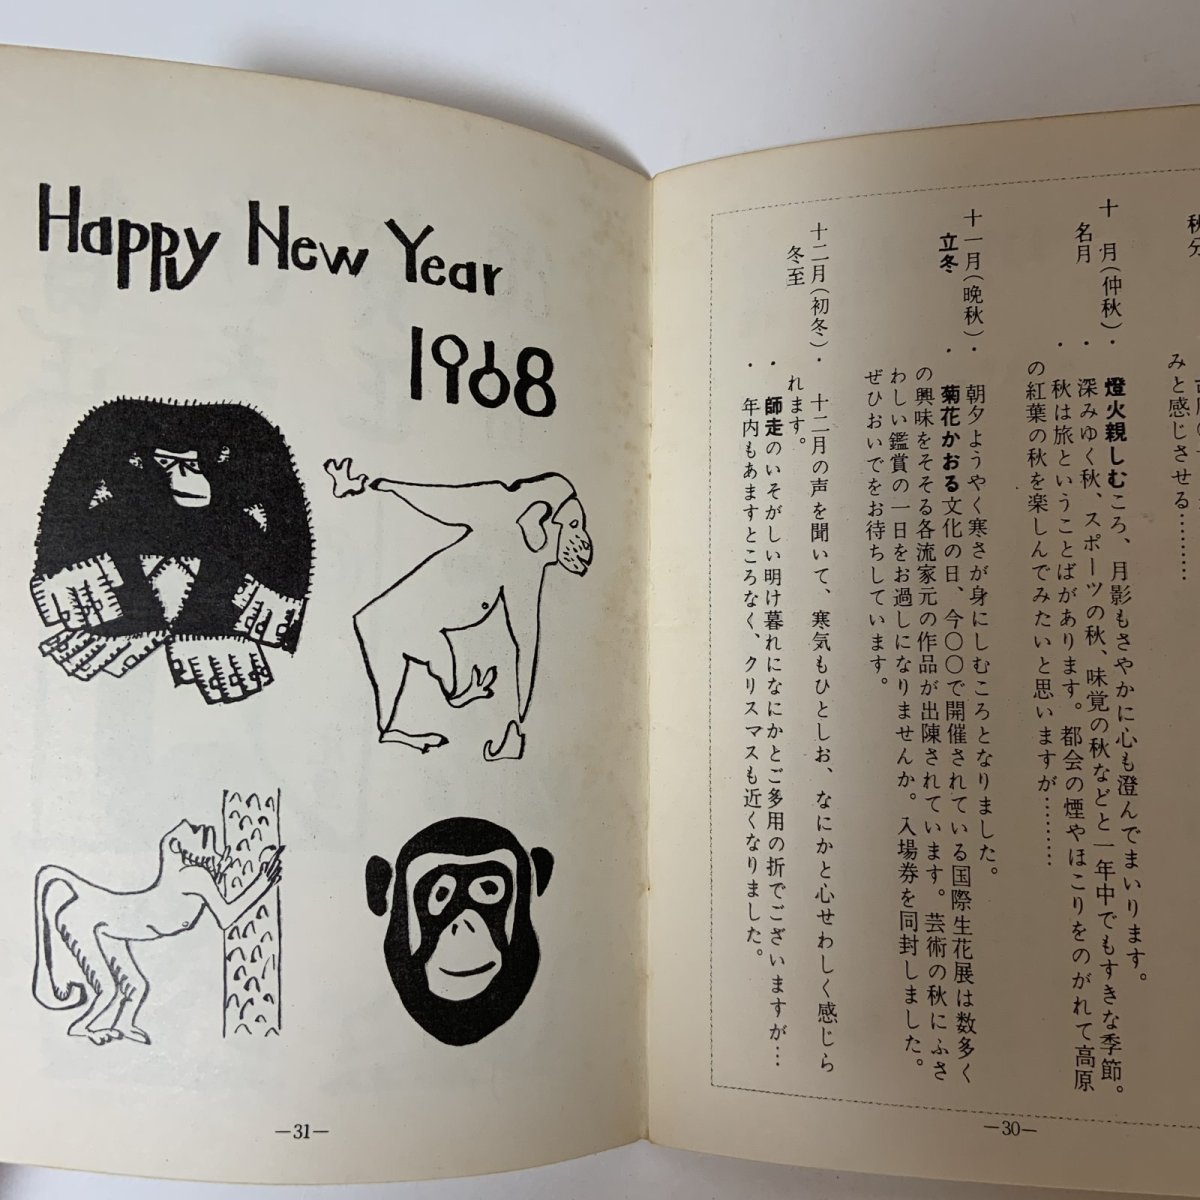 秋分
みと感じさせる………
十　月（仲秋）・
名月　・
燈火親しむころ、月影もさやかに心も澄んでまいります。
深みゆく秋、スポーツの秋、味覚の秋などと一年中でもすきな季節。
秋は旅ということばがあります。都会の煙やほこりをのがれて高原
の紅葉の秋を楽しんでみたいと思いますが………
十一月（晩秋）・
立冬　・
朝夕ようやく寒さが身にしむころとなりました。
菊花かおる文化の日、今〇〇で開催されている国際生花展は数多く
の興味をそそる各流家元の作品が出陳されています。芸術の秋にふさ
わしい鑑賞の一日をお過しになりませんか。入場券を同封しました。
ぜひおいでをお待ちしています。
十二月（初冬）・
冬至　・
十二月の声を聞いて、寒気もひとしお、なにかと心せわしく感じら
れます。
師走のいそがしい明け暮れになにかとご多用の折でございますが…
年内もあますところなく、クリスマスも近くなりました。
—30—
Happy New Year
1968
—31—